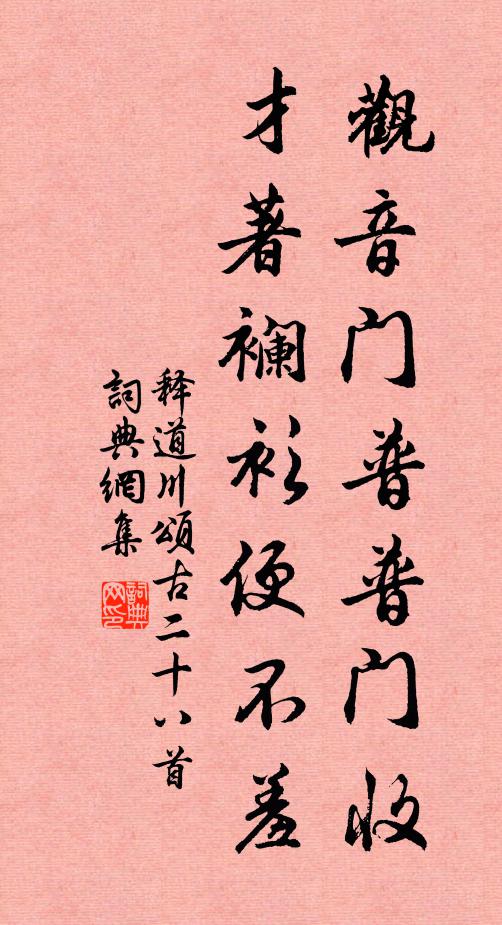 觀音門普普門收
才著襴衫便不羞
释道川頌古二十八首
詞典網集
詞典网印